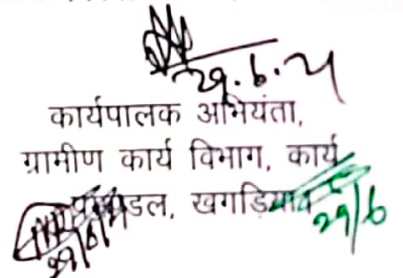 29.6.24
कार्यपालक अभियंता,
ग्रामीण कार्य विभाग, कार्य
प्रमंडल, खगड़िया
29/6
29/6/